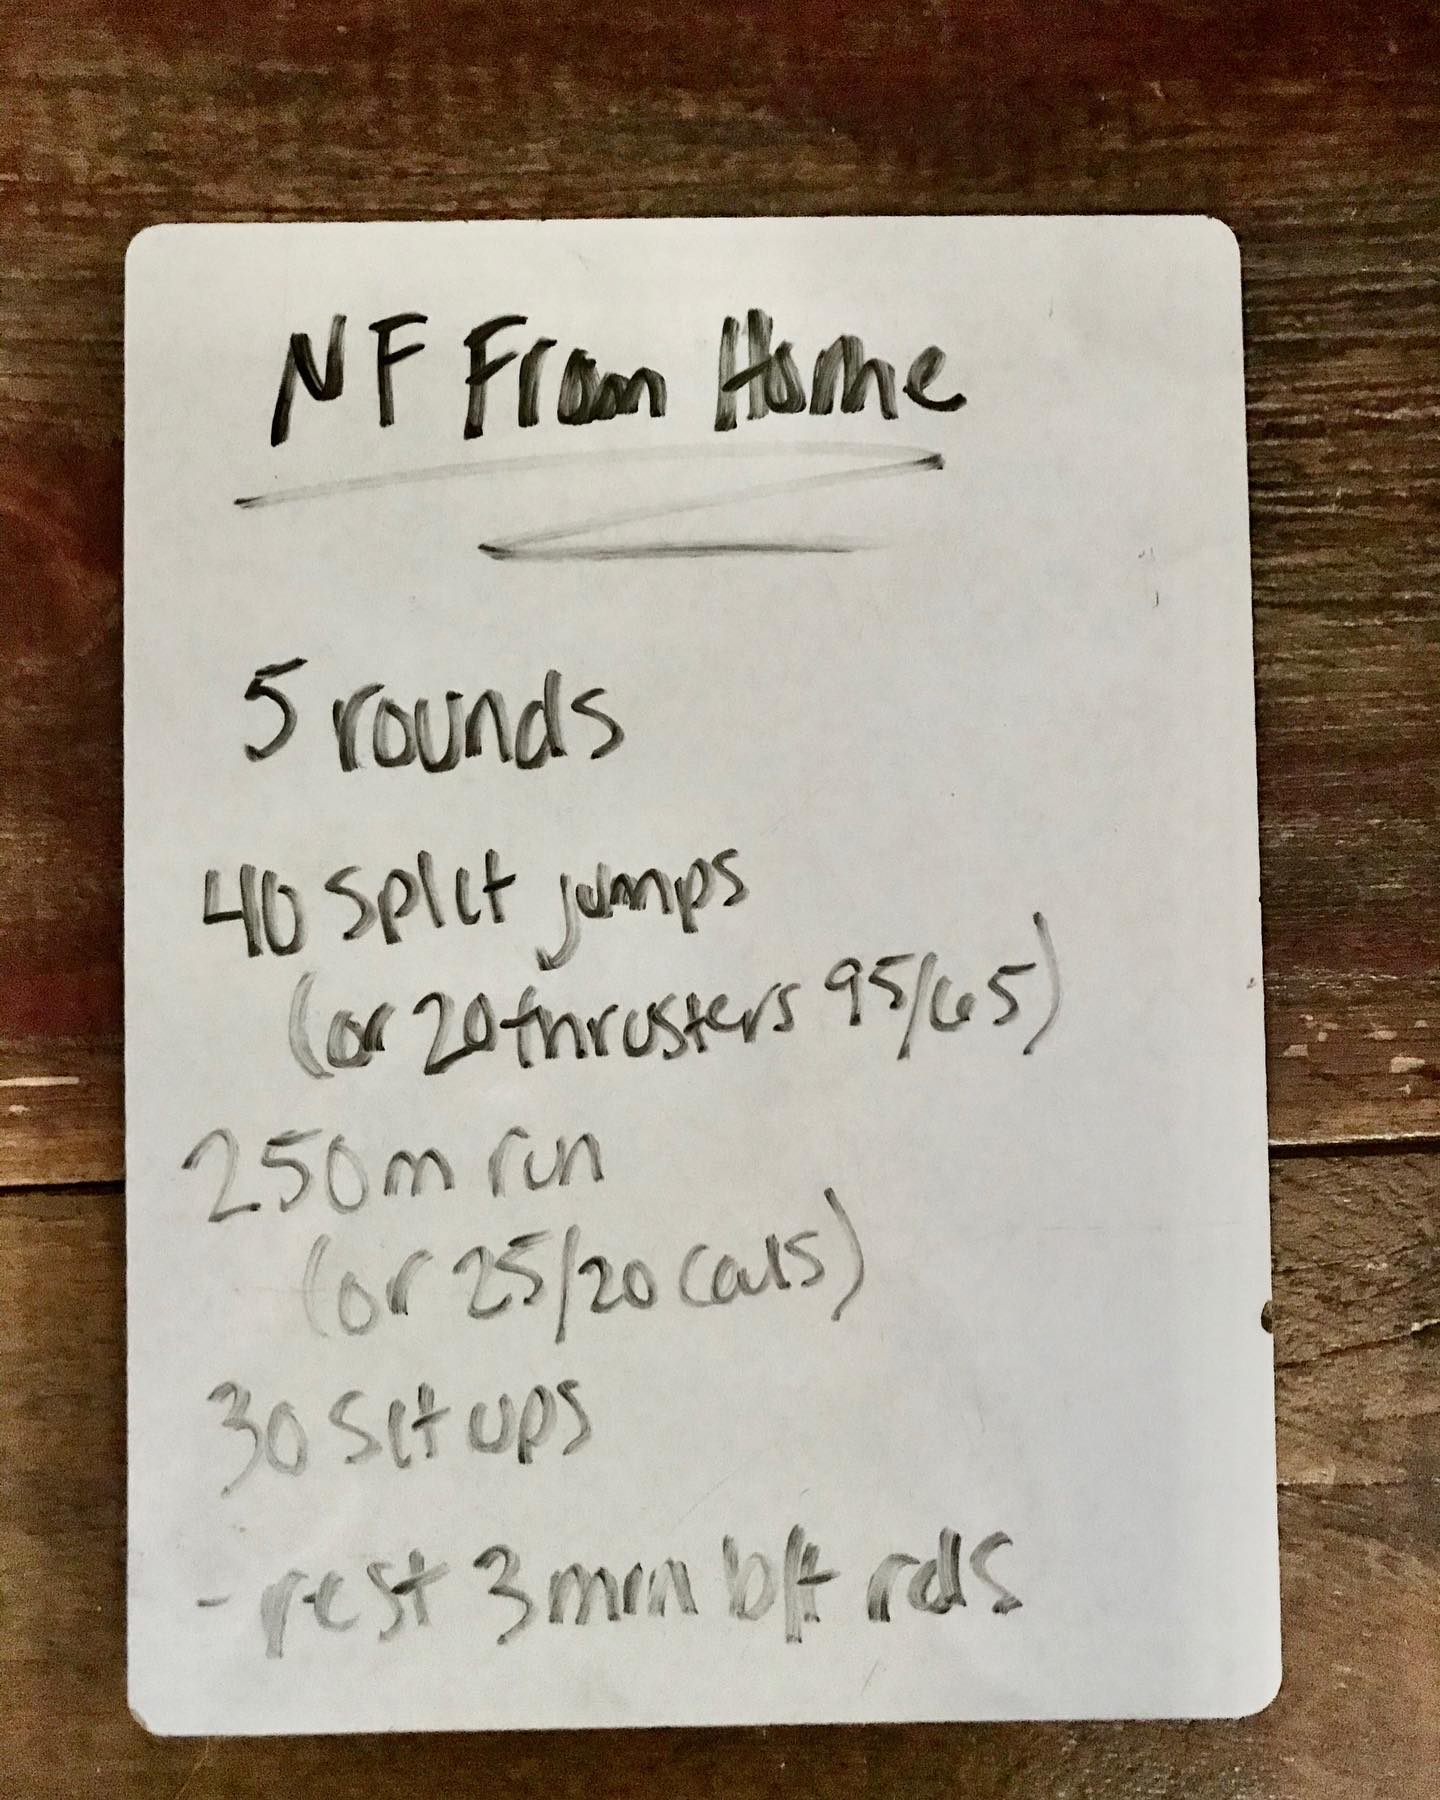 NF From Home
5 rounds
40 split jumps
(or 20 thrusters 95/65)
250m run
(or 25/20 cals)
30 sit ups
- rest 3 min b/t rds